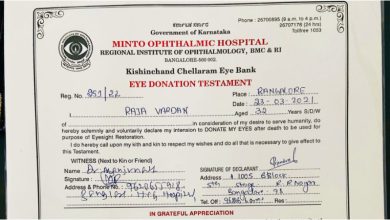 ಕರ್ನಾಟಕ ಸರ್ಕಾರ
Government of Karnataka
Phone : 26706895 (9 a.m. to 4 p.m.)
26707176 (24 hrs)
MINTO OPHTHALMIC HOSPITAL
REGIONAL INSTITUTE OF OPHTHALMOLOGY, BMC & RI
BANGALORE-560 002.
Kishinchand Chellaram Eye Bank
EYE DONATION TESTAMENT
Reg. No. 251/22
Place: BANGALORE
Date : 23-03-2021
I RAJA VARDAN Aged 32 Years S/D/W
of in consideration of my desire to serve humanity, do
hereby solemnly and voluntarily declare my intension to DONATE MY EYES after death to be used for
purpose of Eyesight Restoration.
I do hereby call upon my kith and kin to respect my wishes and do all that is necessary to give effect to
this Testament.
WITNESS (Next to Kin or Friend)
Name :
Signature :
Address & Phone No.:
SIGNATURE OF DECLARANT
Address :
Bangalore
Tel. No. Off/Res. :
IN GRATEFUL APPRECIATION